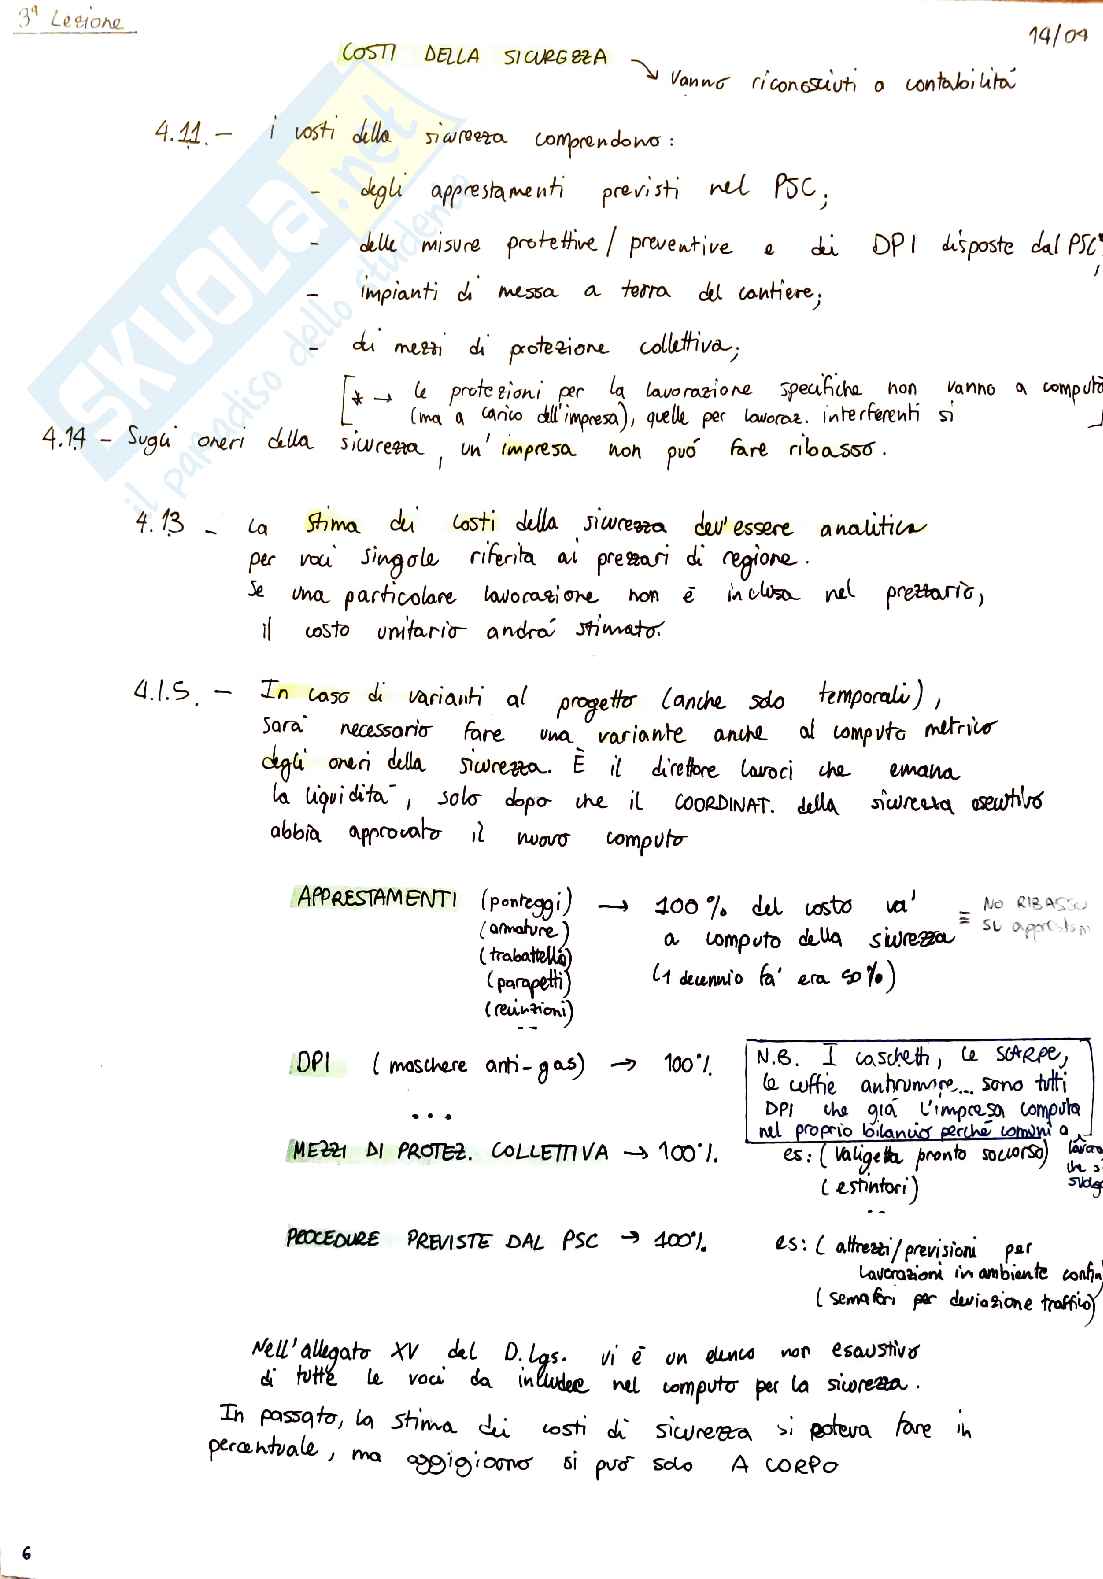 3ª Lezione
14/09
COSTI DELLA SICUREZZA
Vanno riconosciuti a contabilità
4.11. - i costi della sicurezza comprendono:
- degli apprestamenti previsti nel PSC;
- delle misure protettive/preventive e dei DPI disposte dal PSC*
;
- impianti di messa a terra del cantiere;
- dei mezzi di protezione collettiva;
[* → le protezioni per la lavorazione specifiche non vanno a computo
(ma a carico dell'impresa), quelle per lavoraz. interferenti si ]
4.14 - Sugli oneri della sicurezza, un'impresa non può fare ribasso.
4.13 - La stima dei costi della sicurezza dev'essere analitica
per voci singole riferita ai prezzari di regione.
Se una particolare lavorazione non è inclusa nel prezzario,
il costo unitario andrá stimato.
4.1.5. - In caso di varianti al progetto (anche solo temporali),
Sará necessario fare una variante anche al computo metrico
degli oneri della sicurezza. È il direttore lavoci che emana
la liquidità, solo dopo che il COORDINAT. della sicurezza esecutivo
abbia approvato il nuovo computo
APPRESTAMENTI (ponteggi) → 100% del costo va'
= NO RIBASSO
(armature) a computo della sicurezza
SU apprestam
(trabattelli)
(parapetti) (1 decennio fa' era 50%)
(recinzioni)
--
DPI (maschere anti-gas) → 100%.
N.B. I caschetti, le SCARPE,
le cuffie antirumore... sono tutti
DPI che giá l'impresa computa
nel proprio bilancio perché comuni a
...
MEZZI DI PROTEZ. COLLETTIVA → 100%. es: (valigetta pronto soccorso)
(estintori)
..
PROCEDURE PREVISTE DAL PSC → 100%. es: (attrezzi/previsioni per
lavorazioni in ambiente confin
(semafori per deviazione traffico)
Nell'allegato XV del D.lgs. vi è un elenco non esaustivo
di tutte le voci da includere nel computo per la sicurezza.
In passato, la stima dei costi di sicurezza si poteva fare in
percentuale, ma oggigiorno si può solo A CORPO
6
SKUOLA.net
il paradiso dello studente